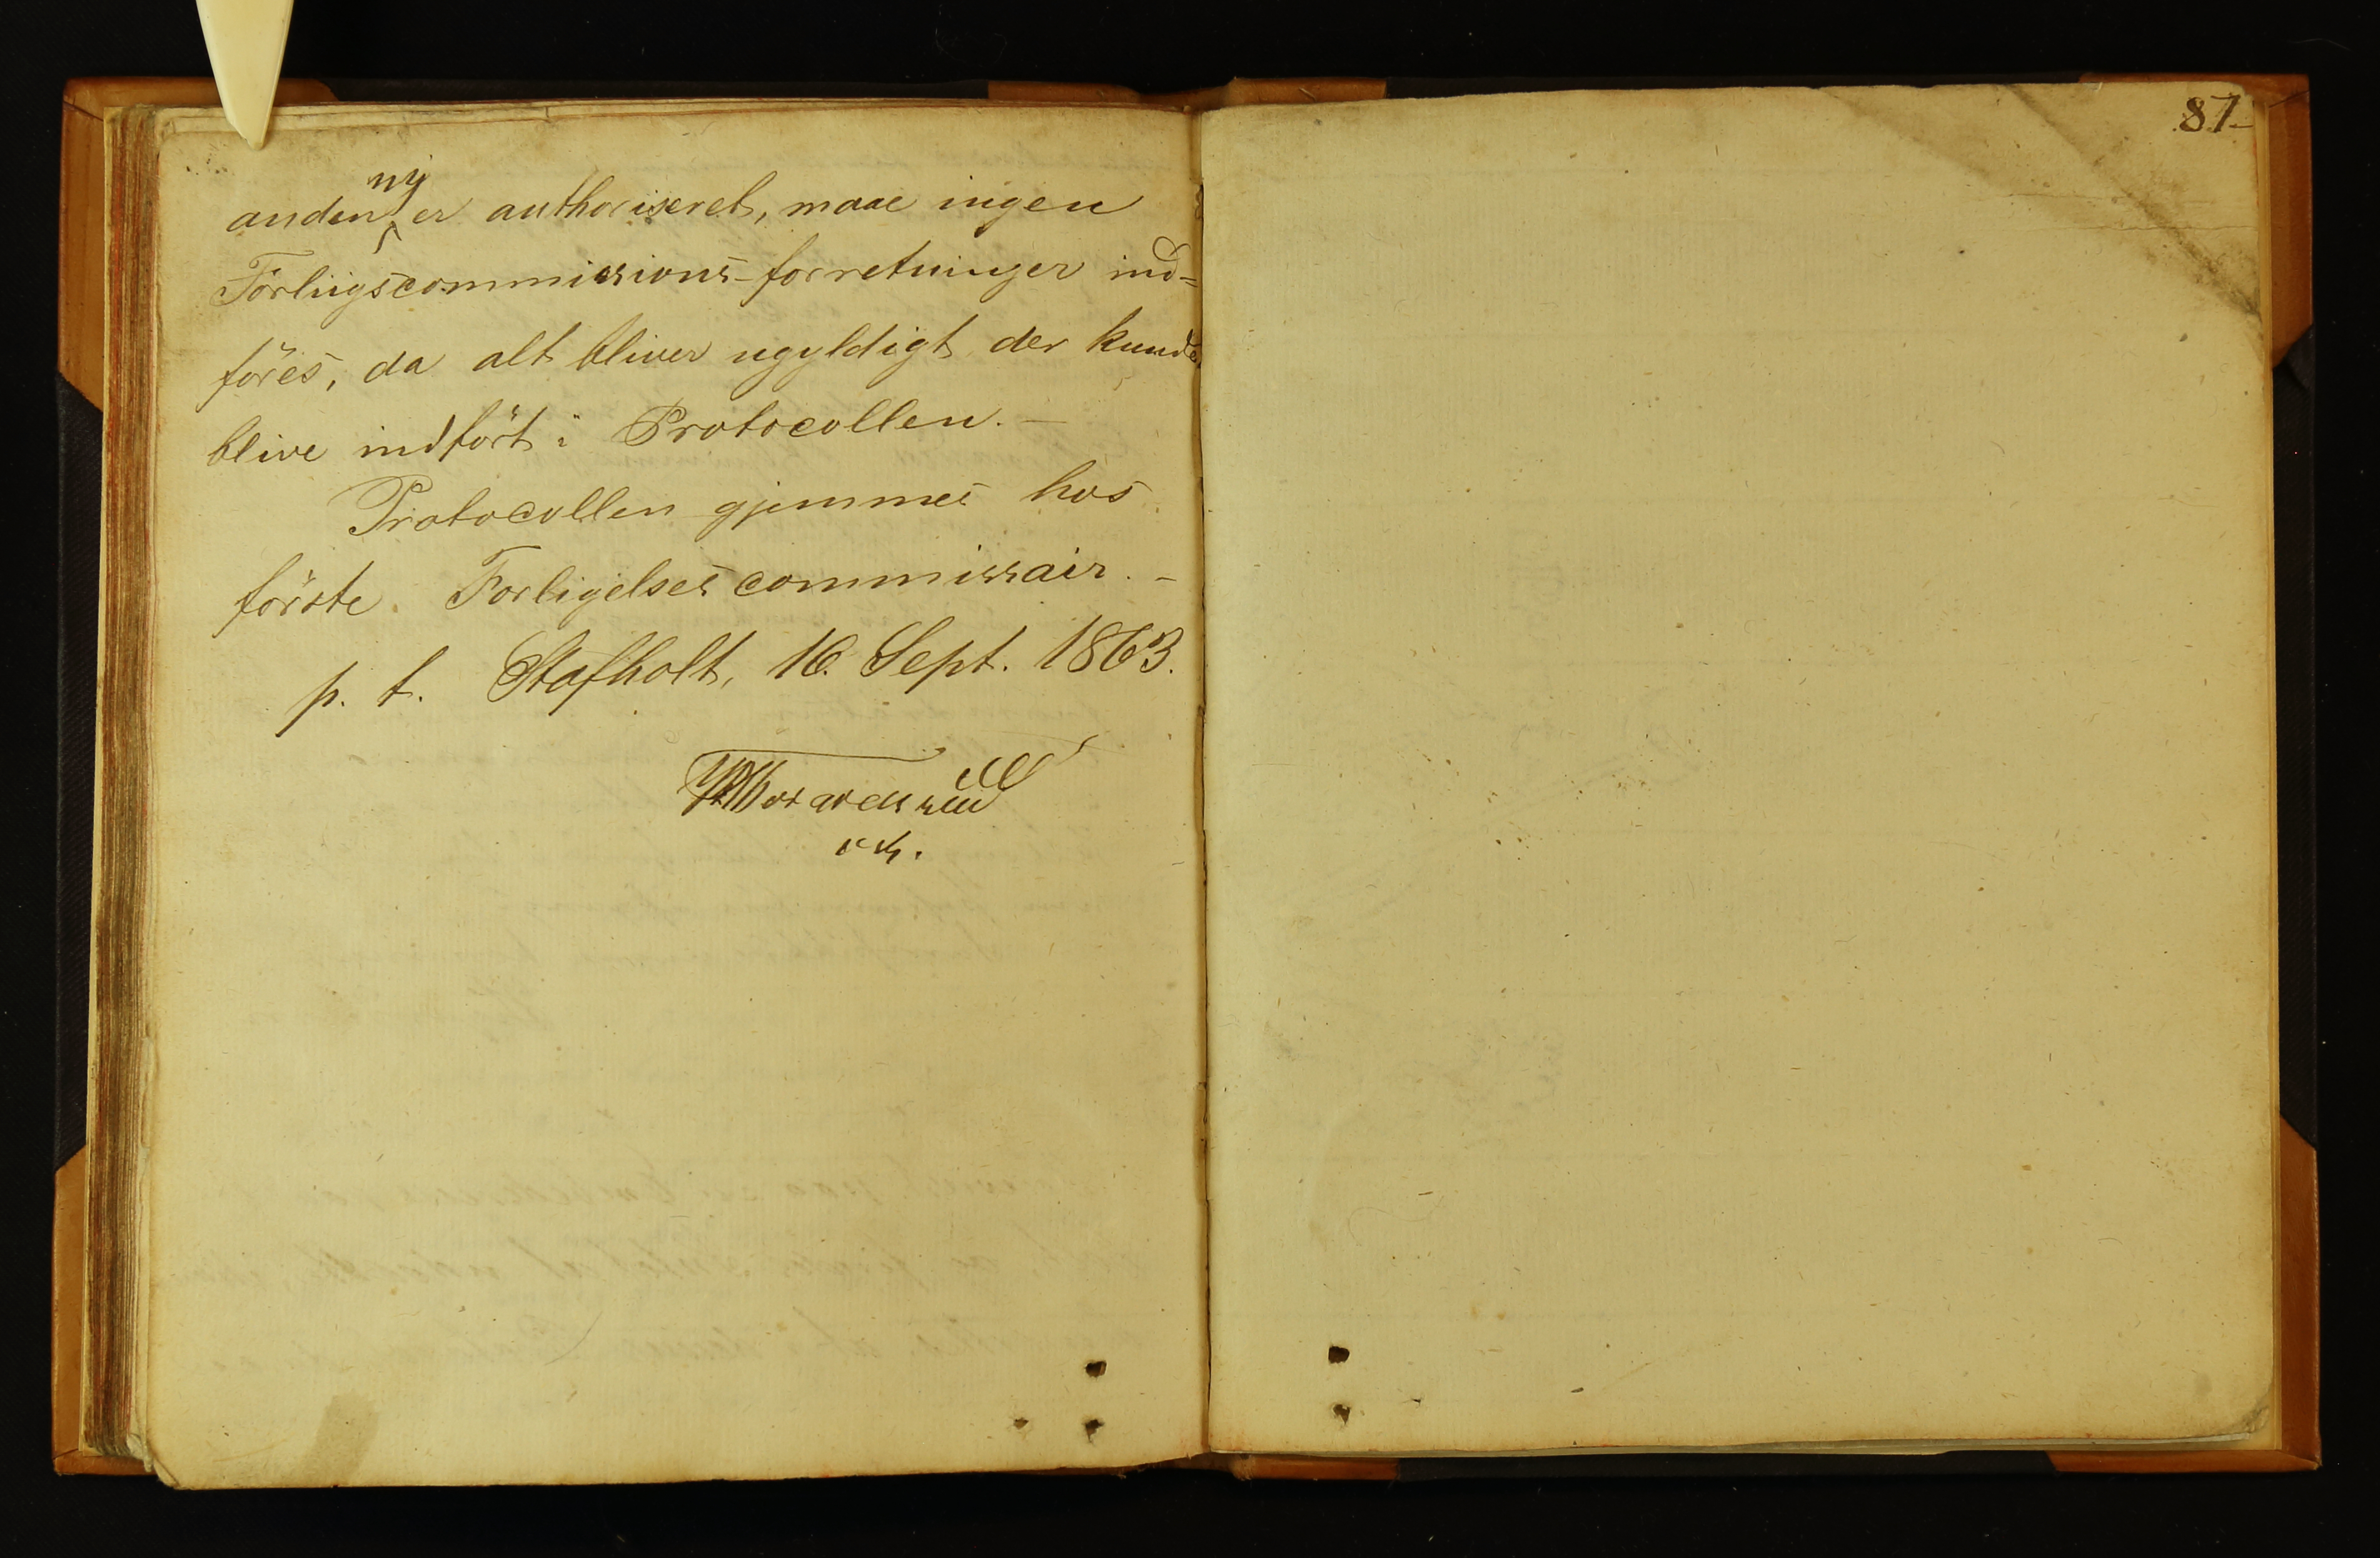 anden ny er authoriseret, maae ingen
Forliigscommissions-forretninger ind=
föres, da alt bliver ugyldigt der kunde
blive indfört i Protocollen. —
Protocollen gjemmes hos
förste Forligelsescommissair. –
p. t. Stafholt, 16. Sept. 1863.
87